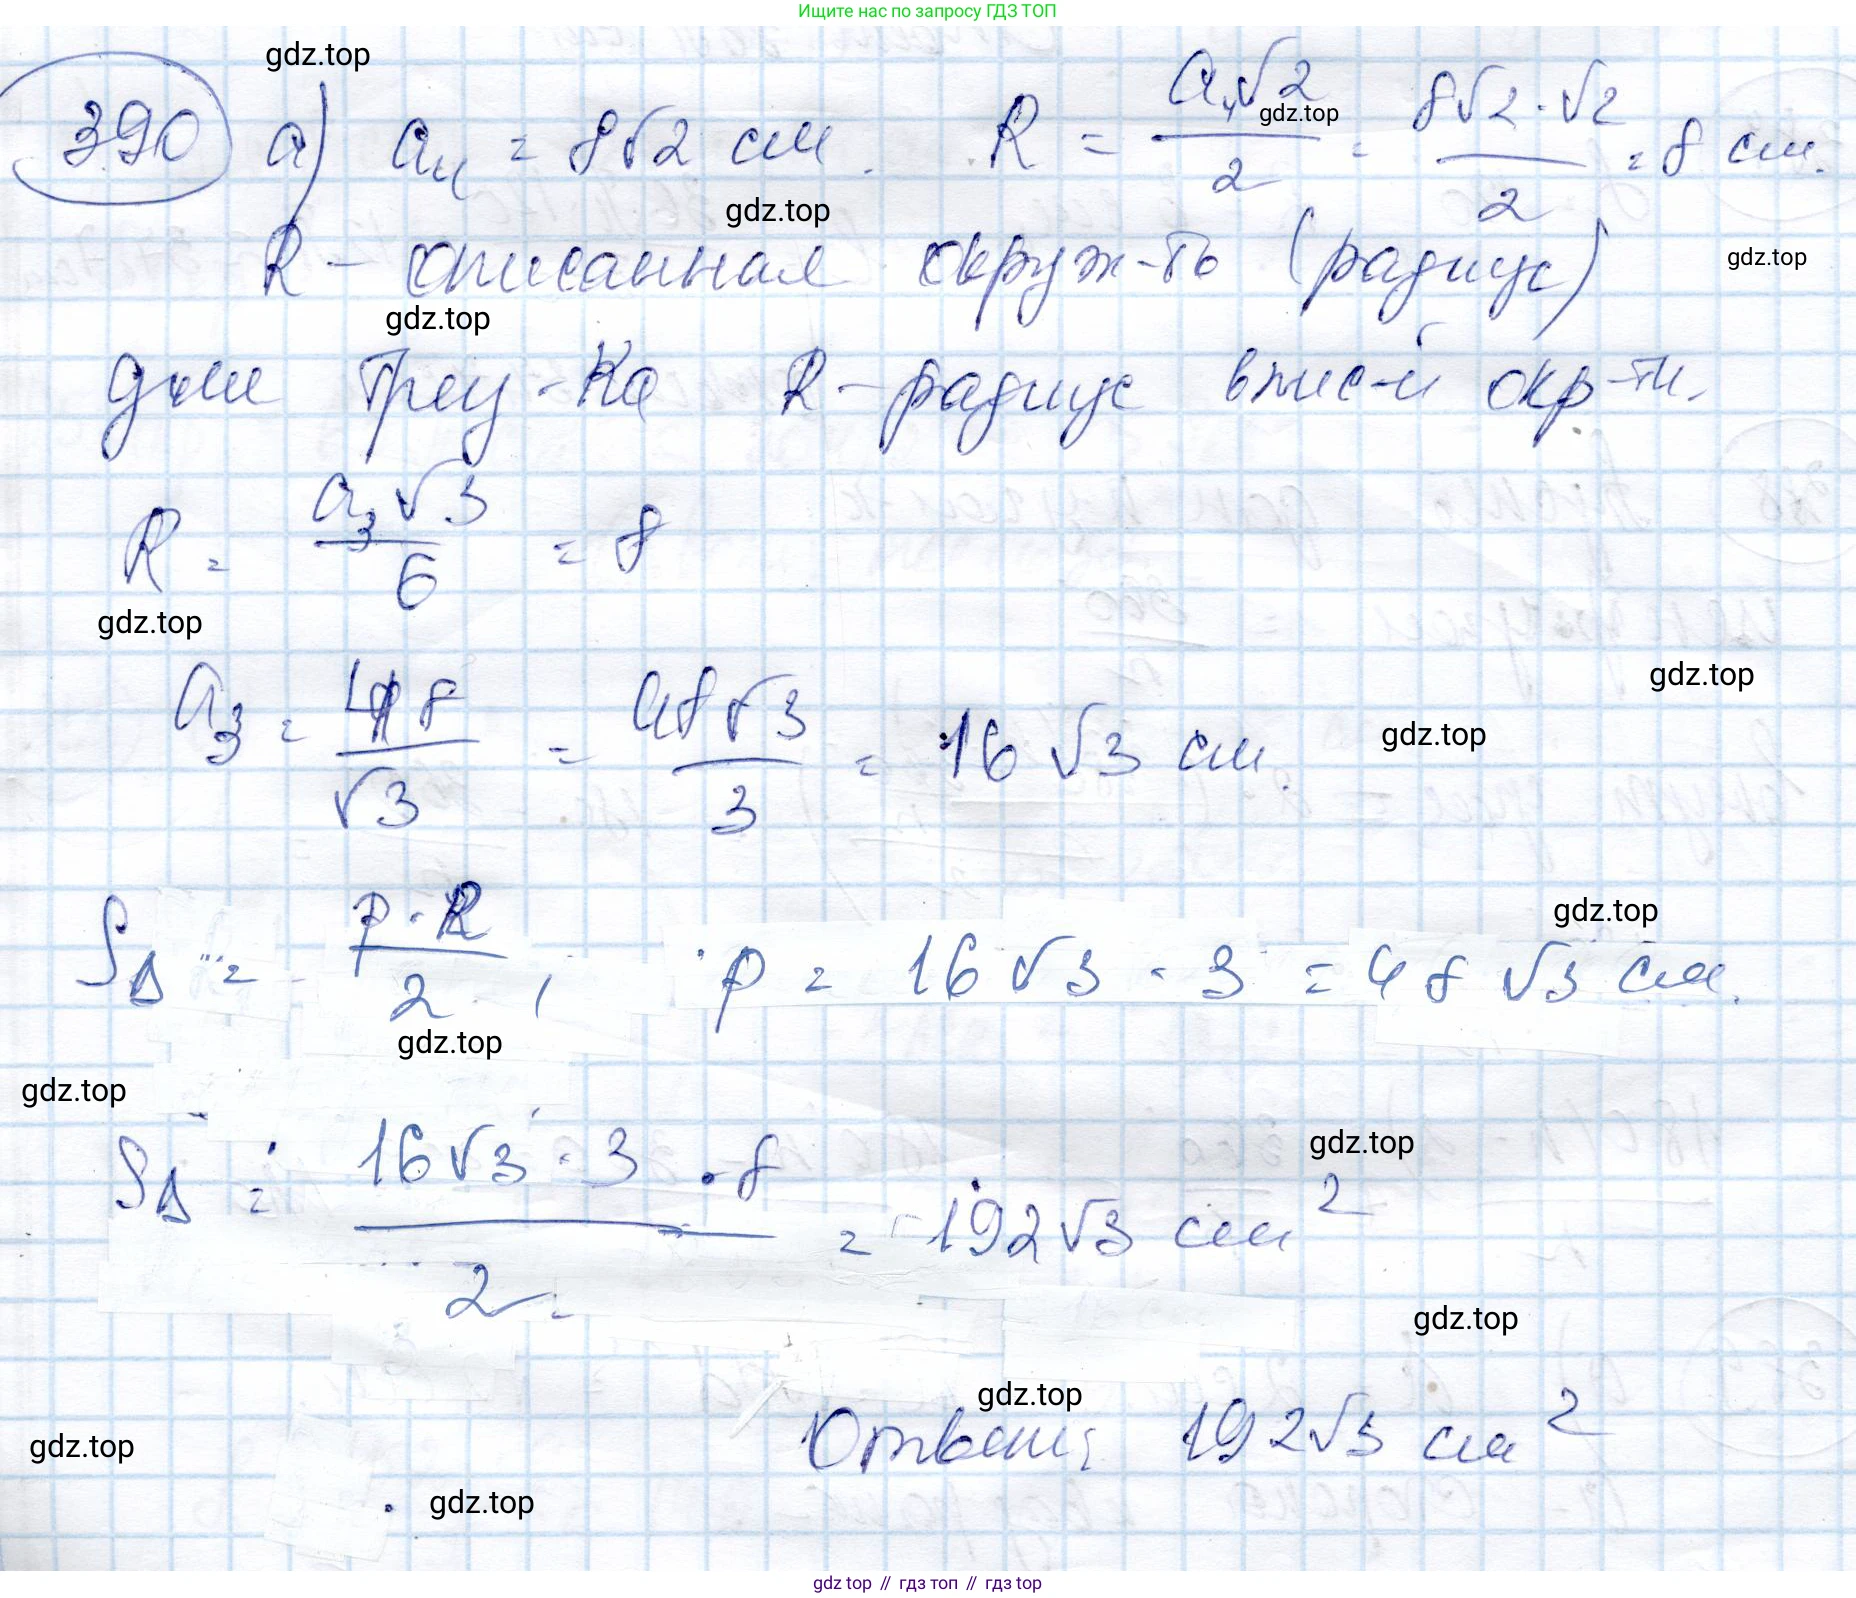 Ищите нас по запросу ГДЗ ТОП
gdz.top
390 а) a₄ = 8√2 см. R = a₄√2/2 = 8√2·√2/2 = 8 см.
gdz.top
gdz.top
R – описанная окруж-ть (радиус)
gdz.top
gdz.top
для треу-ка R – радиус впис-й окр-ти.
R = a₃√3/6 = 8
gdz.top
gdz.top
a₃ = 48/√3 = 48√3/3 = 16√3 см.
gdz.top
gdz.top
S△ = p·R/2, p = 16√3 · 3 = 48√3 см.
gdz.top
gdz.top
gdz.top
S△ = 16√3 · 3 · 8/2 = 192√3 см²
gdz.top
gdz.top
Ответ: 192√3 см²
gdz.top
gdz.top
gdz top // гдз топ // gdz top